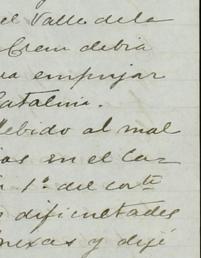 el Valle de la
Crem debia
ua empujar
Catalina.
debido al mal
ias en el Ca-
1º. del corte
dificultades
nexas y dejé